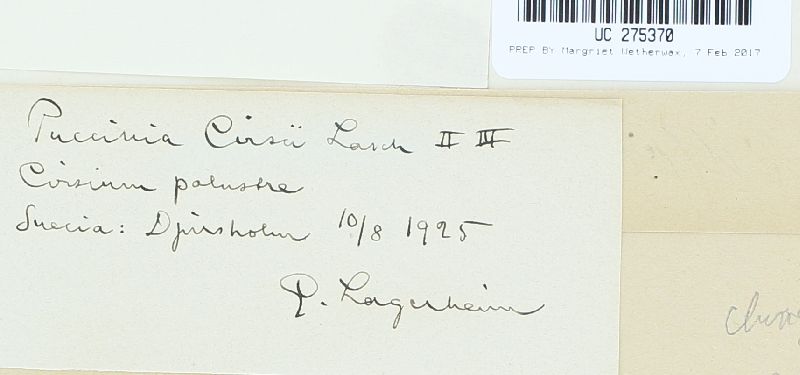 UC 275370
PREP BY Margriet Wetherwax, 7 Feb 2017
Puccinia Cirsii Lasch II III
Cirsium palustre
Suecia: Djursholm 10/8 1925
G. Lagerheim